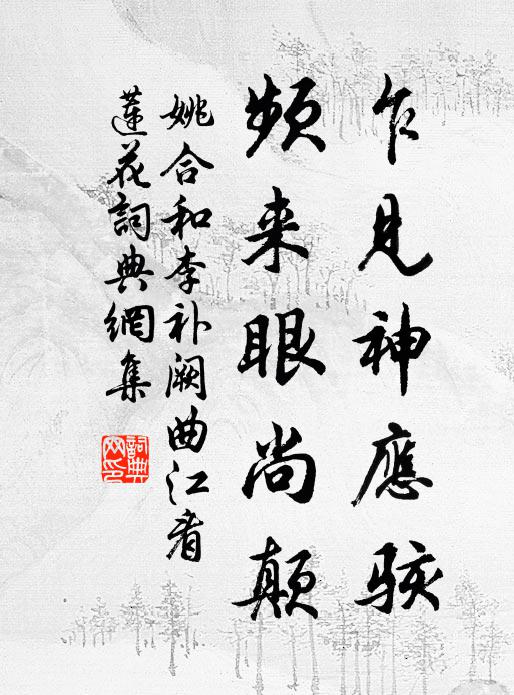 乍見神應駭
頻来眼尚顛
姚合和李补阙曲江看
蓮花詞典網集
詞典网印